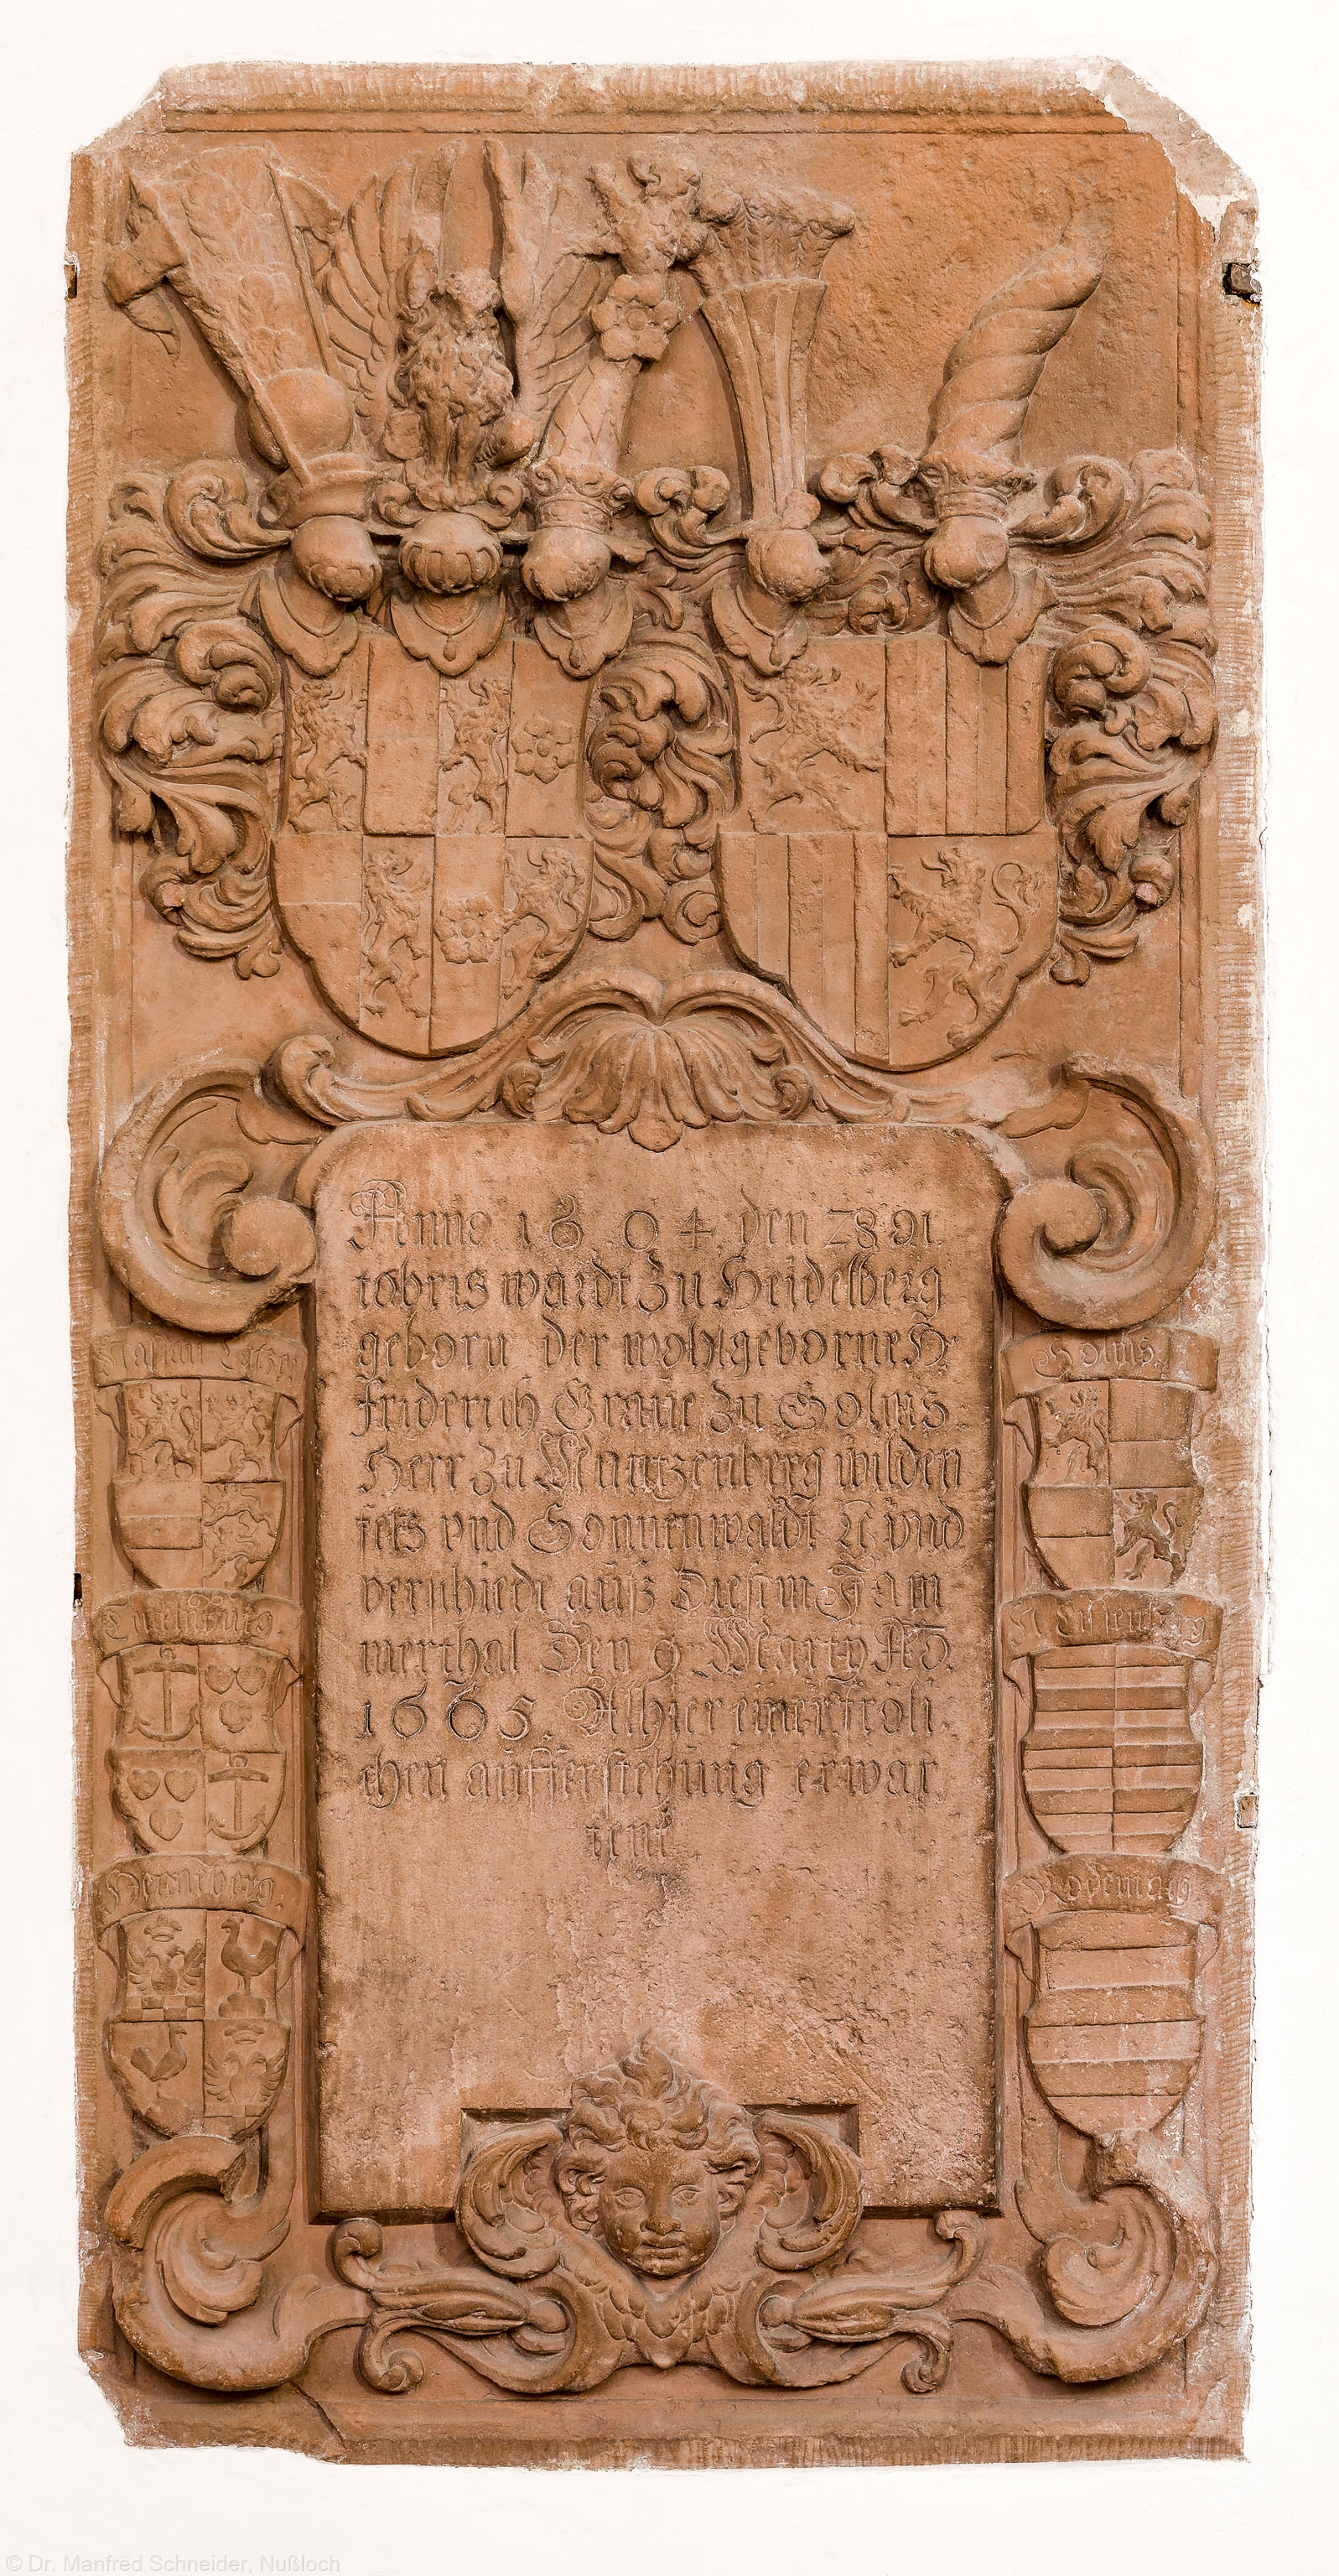 Anno 1604 den 28 91
tobris wardt zu Heidelberg
geborn der wohlgeborne H.
friderich Graue zu Solms.
Herr zu Muntzenberg wilden
fels vnd Sonnenwaldt vnd
verschiedt auß Diesem Jam
merthal Den 9 Marty AD.
1665. Alhier einer fröli
chen aufferstehung erwar
tent
Naßau Catzen
Luxemburg.
Hennnberg
Solms.
Rodemach
© Dr. Manfred Schneider, Nußloch